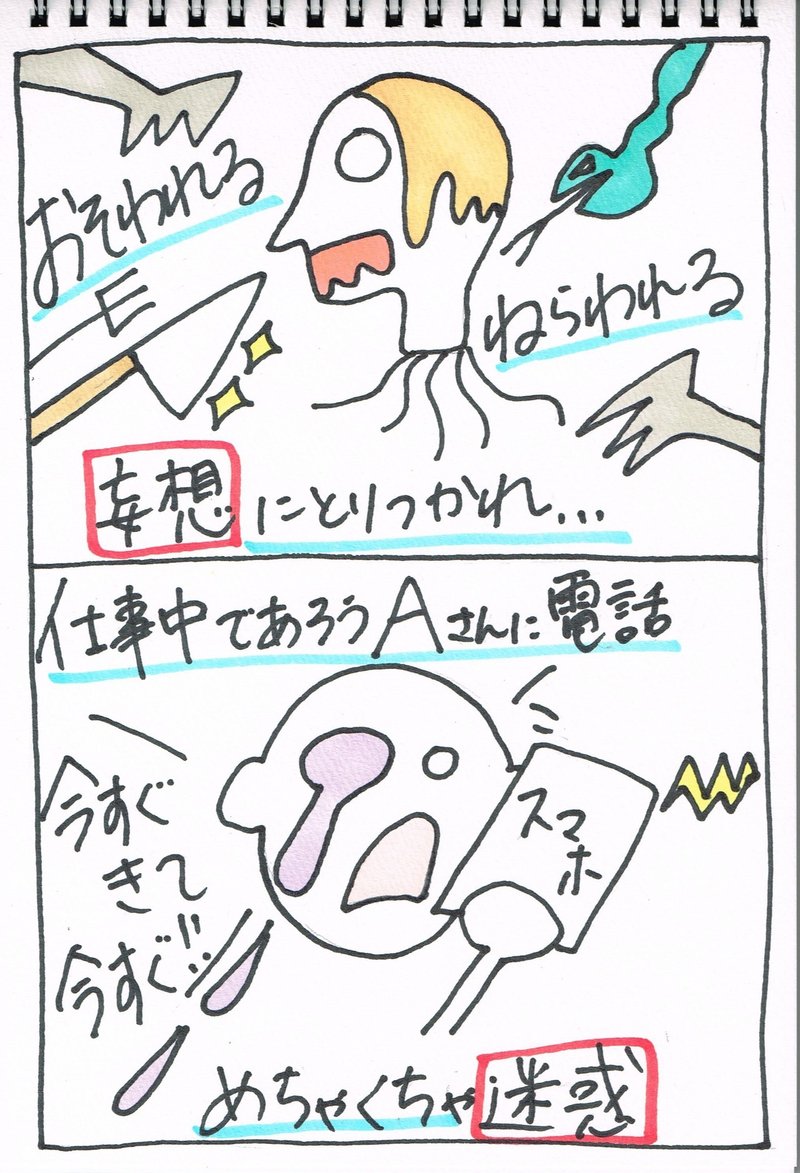 おそわれる
ねらわれる
妄想にとりつかれ...
仕事中であろうAさんに電話
今すぐ
きて
今すぐ!!
スマホ
めちゃくちゃ迷惑